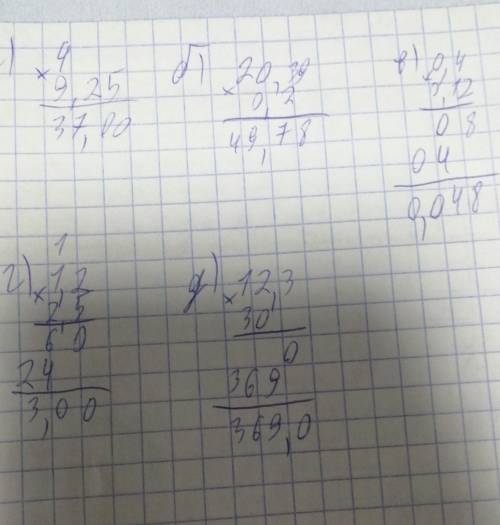 4
× 9,25
37,00
б) 20,39
× 0,2
49,78
в) 0,4
× 0,12
08
04
0,048
1
г) 1,2
× 2,5
60
24
3,00
д) 12,3
× 30
0
369
369,0